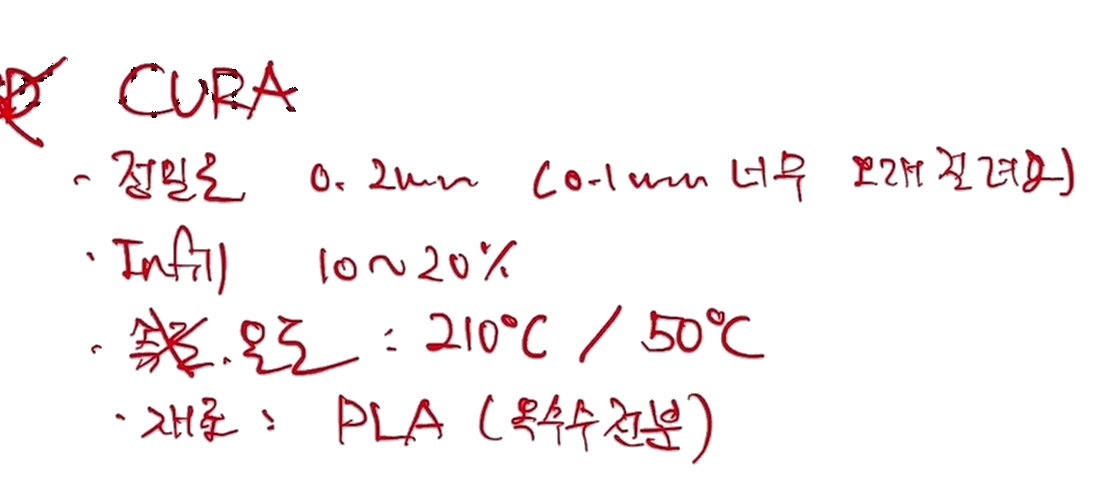 CURA
· 정밀도 0.2mm (0.1mm 너무 오래 걸려요)
· Infill 10~20%
· 온도 : 210°C / 50°C
· 재료 : PLA (옥수수전분)